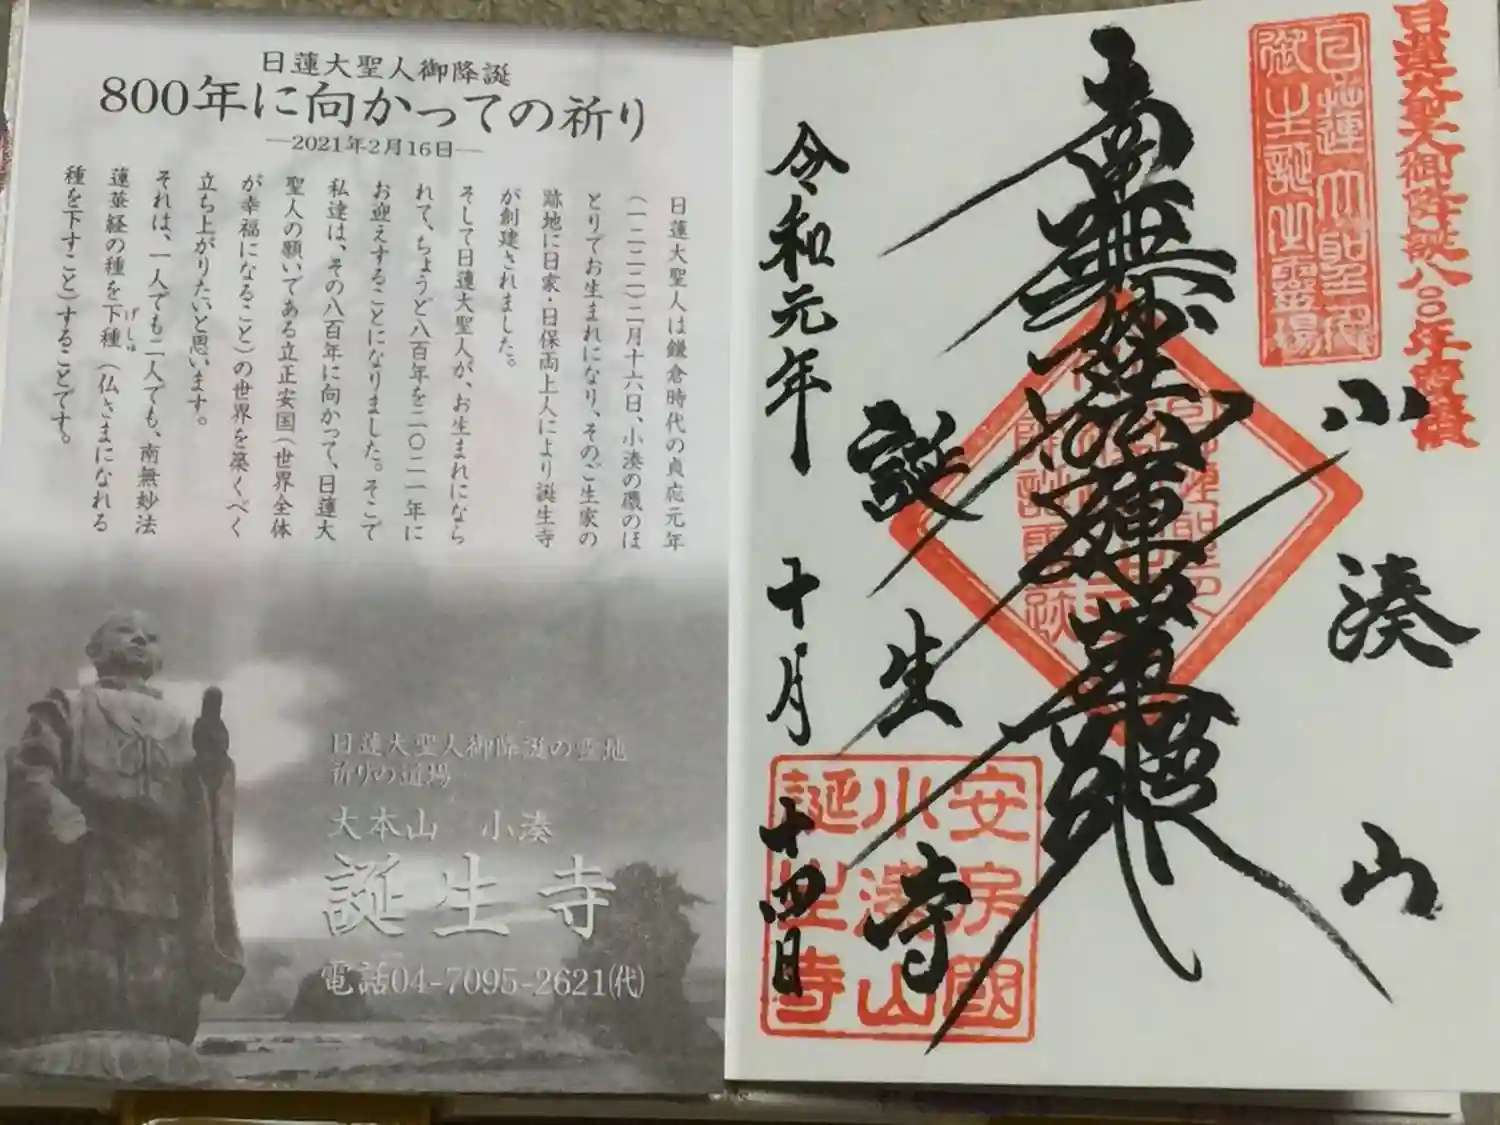 日蓮大聖人御降誕
800年に向かっての祈り
―2021年2月16日―
日蓮大聖人は鎌倉時代の貞応元年
（一二二二）二月十六日、小湊の磯のほ
とりでお生まれになり、そのご生家の
跡地に日家・日保両上人により誕生寺
が創建されました。
そして日蓮大聖人が、お生まれになら
れて、ちょうど八百年を二〇二一年に
お迎えすることになりました。そこで
私達は、その八百年に向かって、日蓮大
聖人の願いである立正安国（世界全体
が幸福になること）の世界を築くべく
立ち上がりたいと思います。
それは、一人でも二人でも、南無妙法
蓮華経の種を下種（仏さまになれる
げしゅ
種を下すこと）することです。
日蓮大聖人御降誕の霊地
祈りの道場
大本山 小湊
誕生寺
電話04-7095-2621㈹
日蓮大聖人御降誕八〇〇年慶讃
日蓮大聖人
御生誕之霊場
小湊山
南無妙法蓮華経
誕生寺
安房國
小湊山
誕生寺
令和元年 十月 十四日